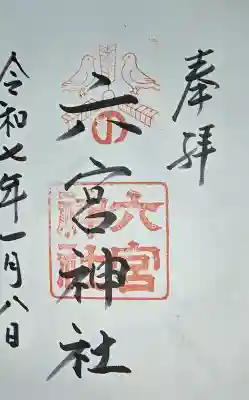 奉拝
六の宮神社
六宮神社
令和七年一月八日